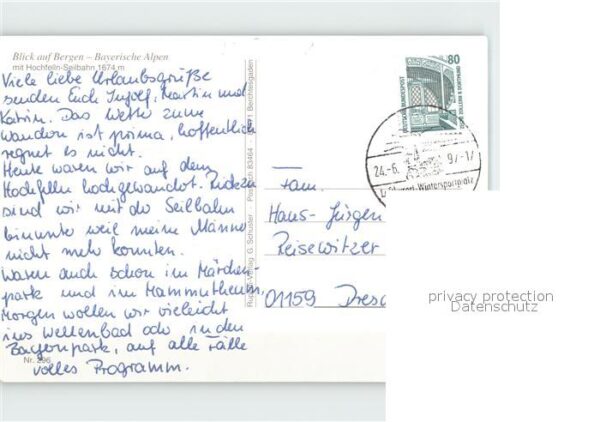 Blick auf Bergen – Bayerische Alpen
mit Hochfelln-Seilbahn 1674 m
Viele liebe Urlaubsgrüße
senden Euch Ingolf, Martin und
Katrin. Das Wetter zum
Wandern ist prima, hoffentlich
regnet es nicht.
Heute waren wir auf dem
Hochfellen hochgewandert.
sind wir mit der Seilbahn
weil meine Männer
nicht mehr konnten.
Waren auch schon im Märchen-
park und im Mammutheum.
Morgen wollen wir vieleicht
ins Wellenbad oder in den
Bayernpark, auf alle Fälle
volles Programm.
Nr. 296
Verlag G. Schuster Postfach 83464 Berchtesgaden
80
DEUTSCHE BUNDESPOST
ZOLLERN II DORTMUND
24.-6. 97-17
Wintersportplatz
Fam.
Hans-Jürgen
Reisewitzer
01159 Dresd
privacy protection
Datenschutz